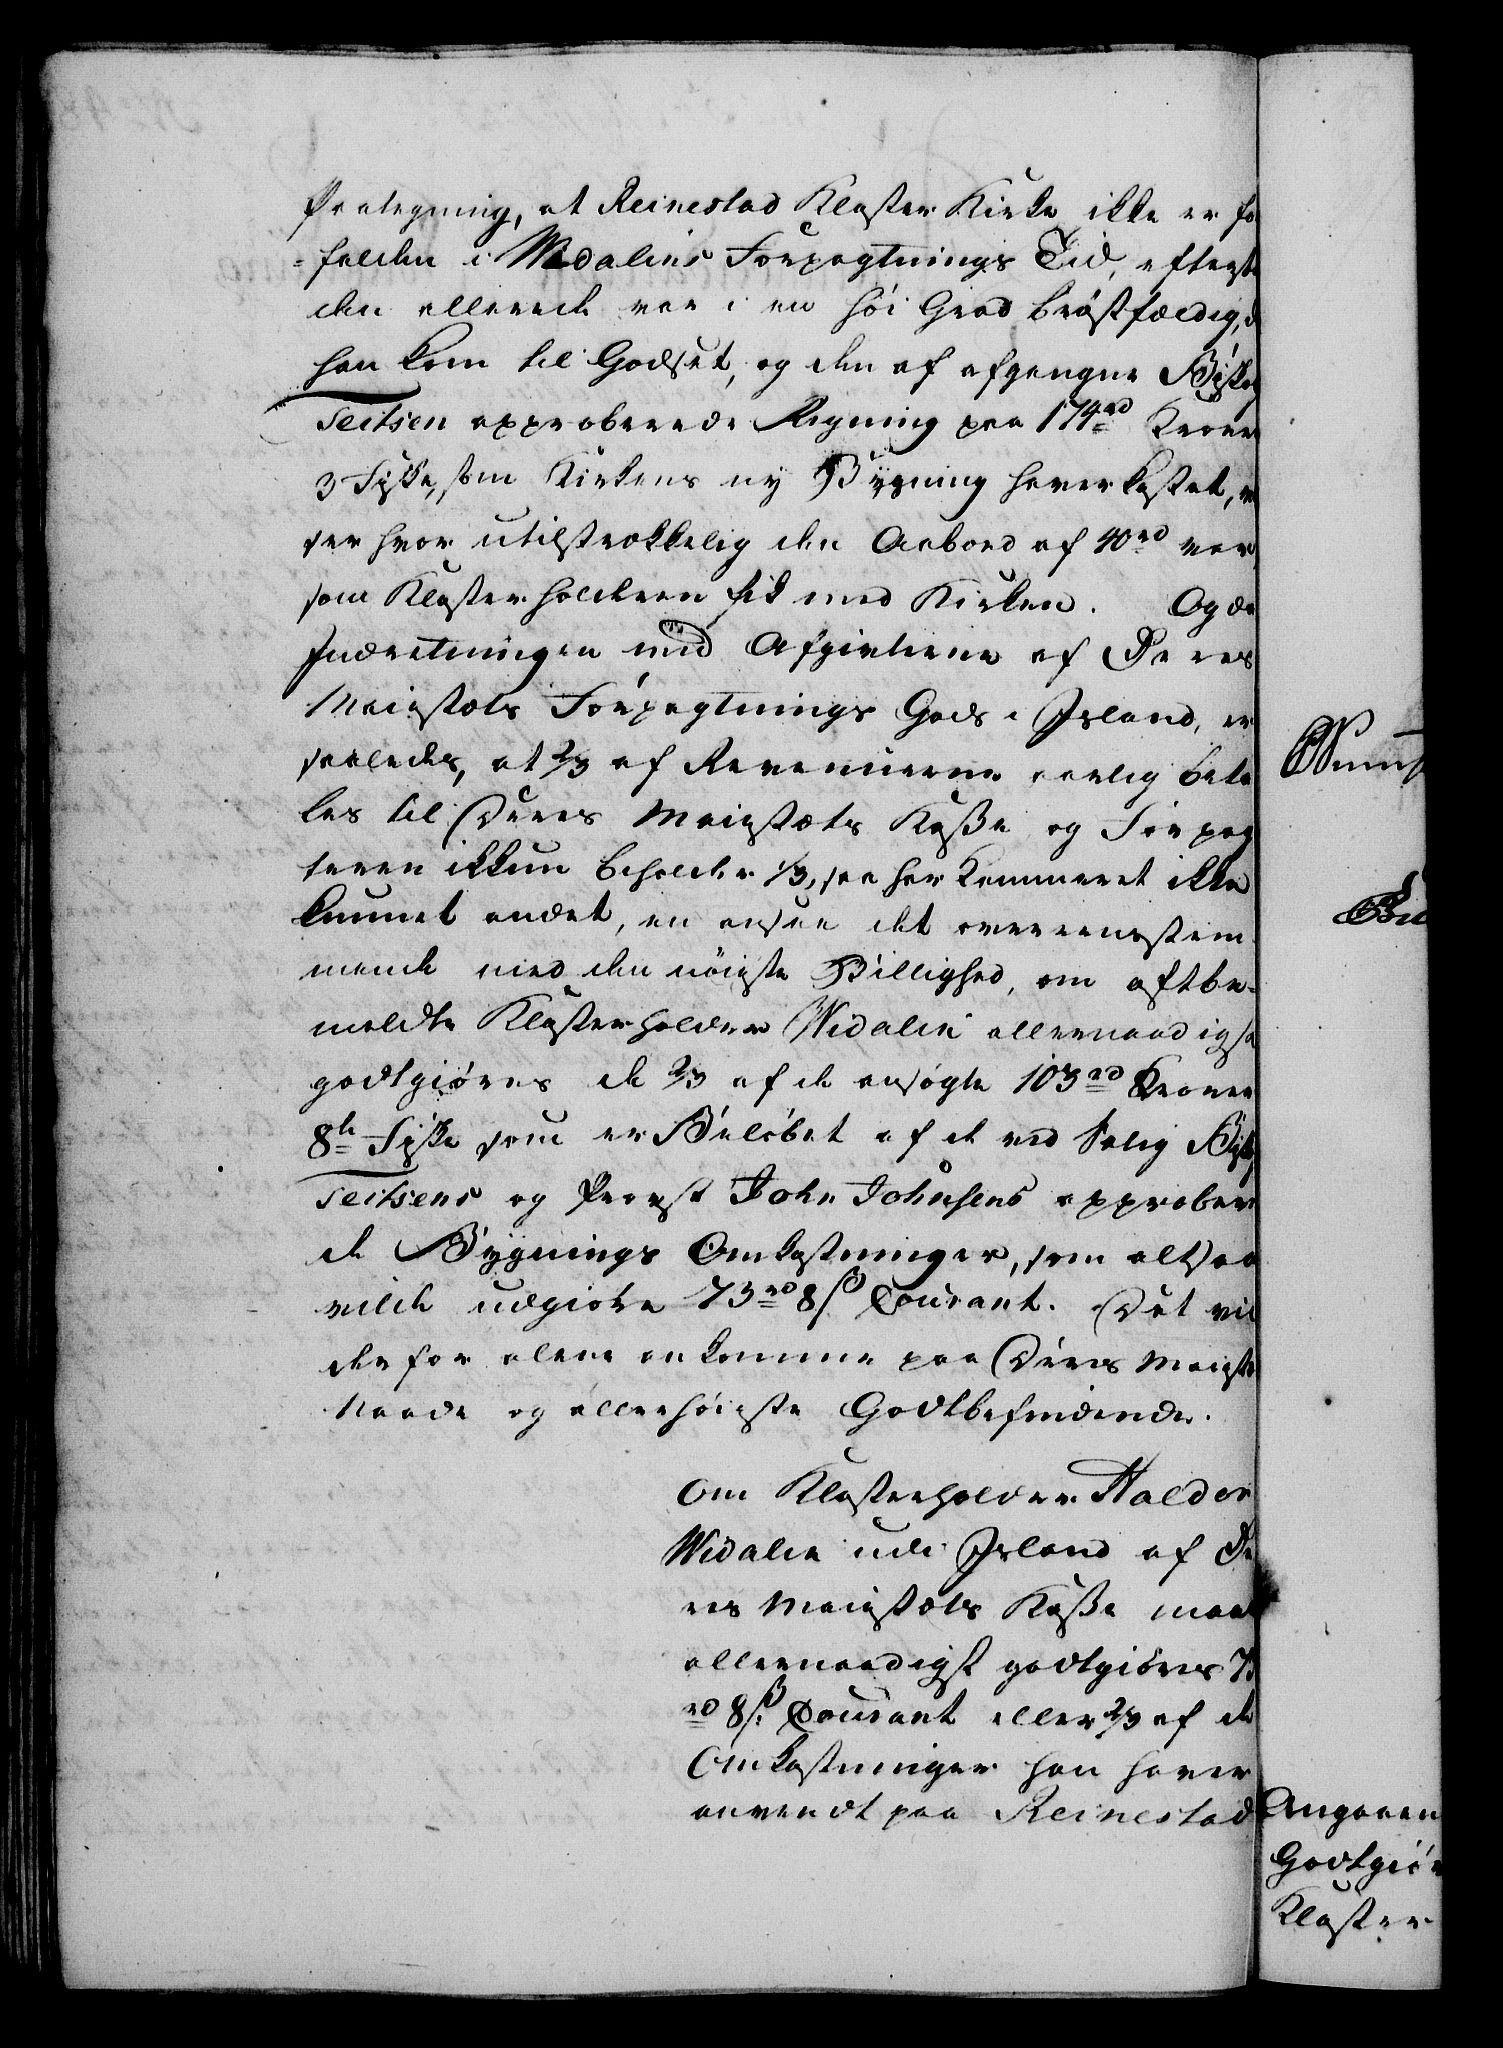 Paategning, at Reinestad Kloster Kirke ikke er for
=falden i Widalins Forpagtnings Tid, efterat
den allerede var i en höi Grad bröstfældig, da
han kom til Godset, og den af afgangne Biskop
Teitsen approberede Regning paa 174 rd Kroner
3 Fiske, som Kirkens ny Bygning haver kostet, vi
ser hvor utilstrækkelig den Aabord af 40 rd var,
som Klosterholderen fik med Kirken. Og da
Indretningen med Afgivterne af Deres
Maiestæts Forpagtnings Gods i Island, er
saaledes, at 2/3 af Revenuerne aarlig beta
les til Deres Maiestæts Kasse og Forpag
teren ikkun beholder 1/3, saa har Kammeret ikke
kunnet andet, en ansee det overeensstem
mende med den nöieste Billighed, om oftbe-
meldte Klosterholder Widalin allernaadigst
godtgiöres de 2/3 af de ansögte 103 rd Kroner
8te Fiske som er Belöbet af de ved Salig Biskop
Teitsens og Provst John Johnsens approbere
de Bygnings Omkostninger, som altsaa
vilde udgiöre 73 rd 8 ß Courant. Det vil
derfor alene ankomme paa Deres Maiestæts
Naade og allerhöieste Godtbefindende.
Om Klosterholder Haldor
Widalin udi Island af De
res Maiestæts Kasse maae
allernaadigst godtgiöres 73
rd 8 ß Courant eller 2/3 af de
Omkostninger han haver
anvendt paa Reinestad
Angaaen
Godtgiör
Kloster